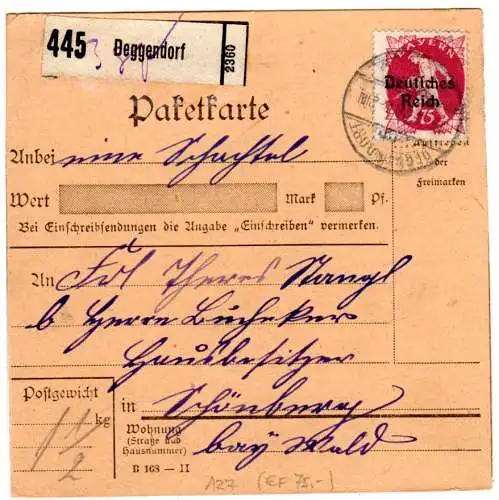 445 Deggendorf 2360
BAYERN
Deutsches
Reich
75
DEGGENDORF
Paketkarte
Aufkleben
der
Freimarken
Anbei eine Schachtel
Wert Mark Pf.
Bei Einschreibsendungen die Angabe „Einschreiben" vermerken.
An Frl Theres Stangl
b Herrn Bucheker
Hausbesitzer
Postgewicht
1 1/2 kg
in Schönberg
Wohnung
(Straße und
Hausnummer)
bay Wald
B 163 — II
127 (EF 75,-)